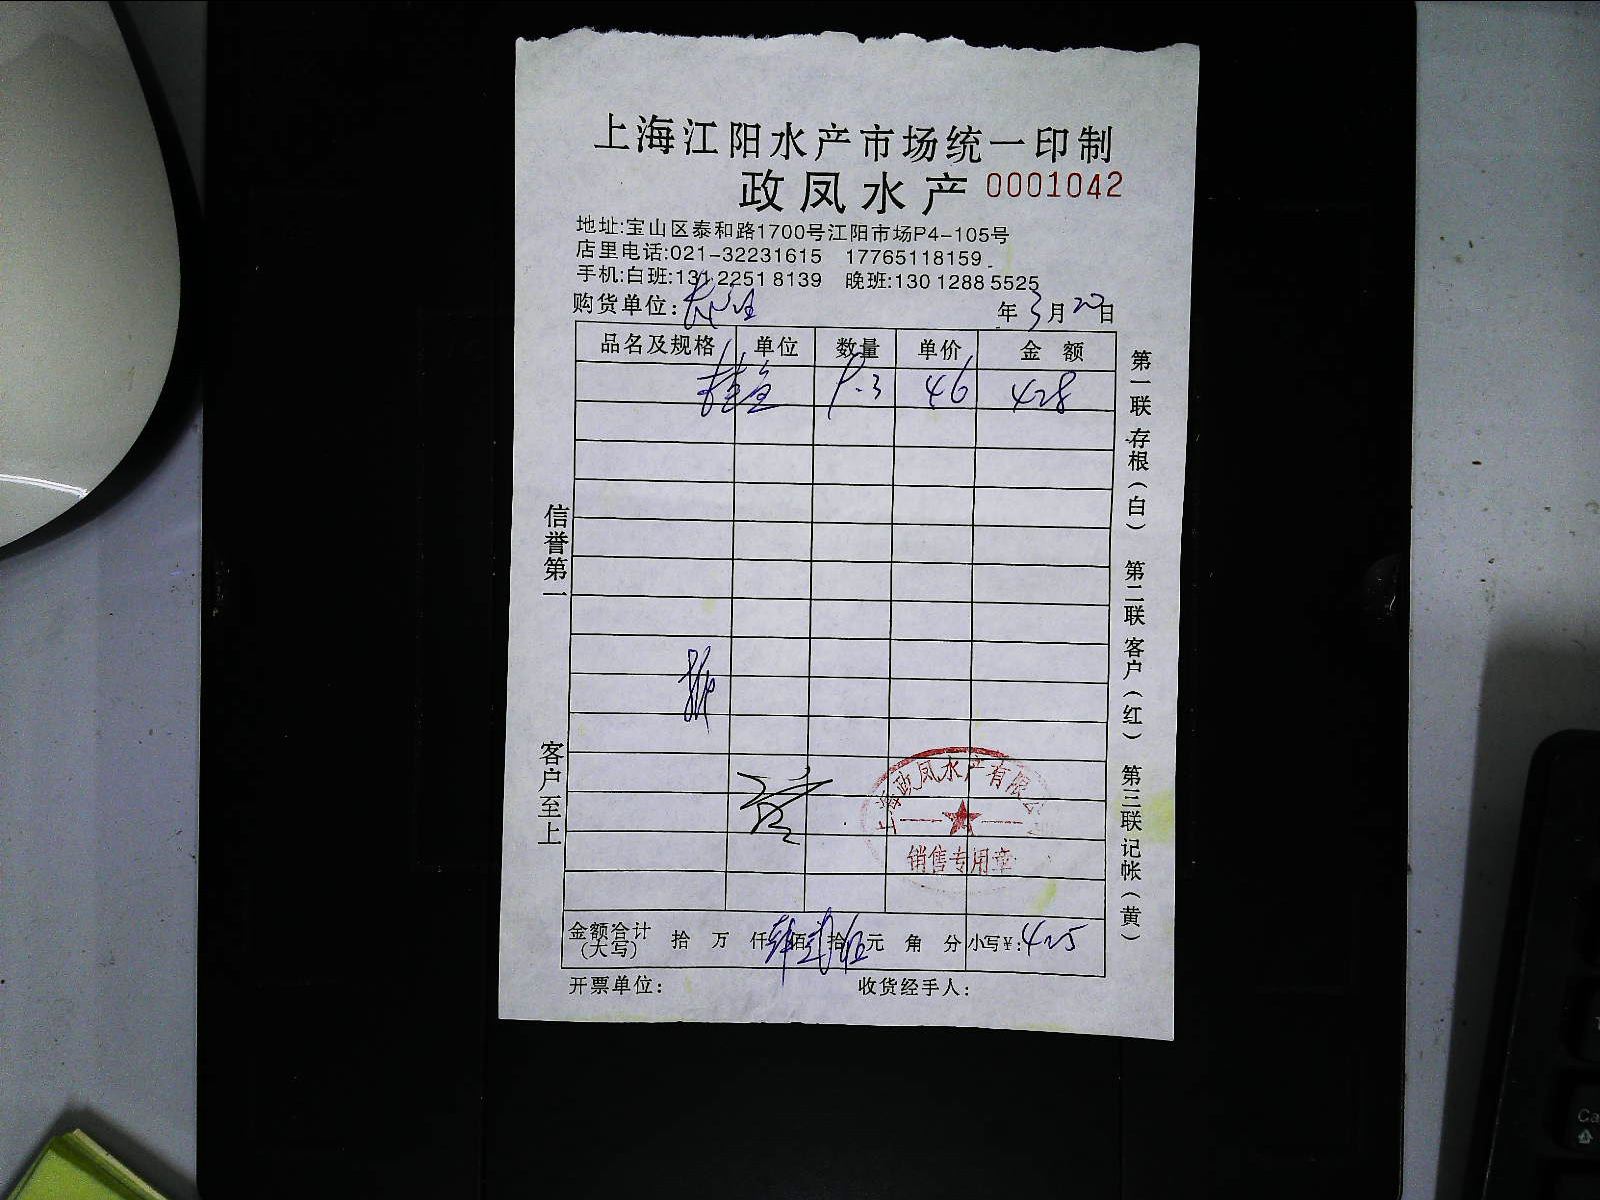 上海江阳水产市场统一印制
政凤水产 0001042
地址:宝山区泰和路1700号江阳市场P4-105号
店里电话:021-32231615 17765118159
手机:白班:131 2251 8139 晚班:130 1288 5525
购货单位: 年 3 月 20 日
品名及规格 单位 数量 单价 金 额
桂鱼 9.3 46 428
信誉第一
客户至上
第一联 存根(白) 第二联 客户(红) 第三联 记帐(黄)
上海政凤水产有限公
销售专用章
金额合计 (大写) 拾 万 仟 肆 佰 贰 拾 伍 元 角 分 小写¥: 425
开票单位: 收货经手人: